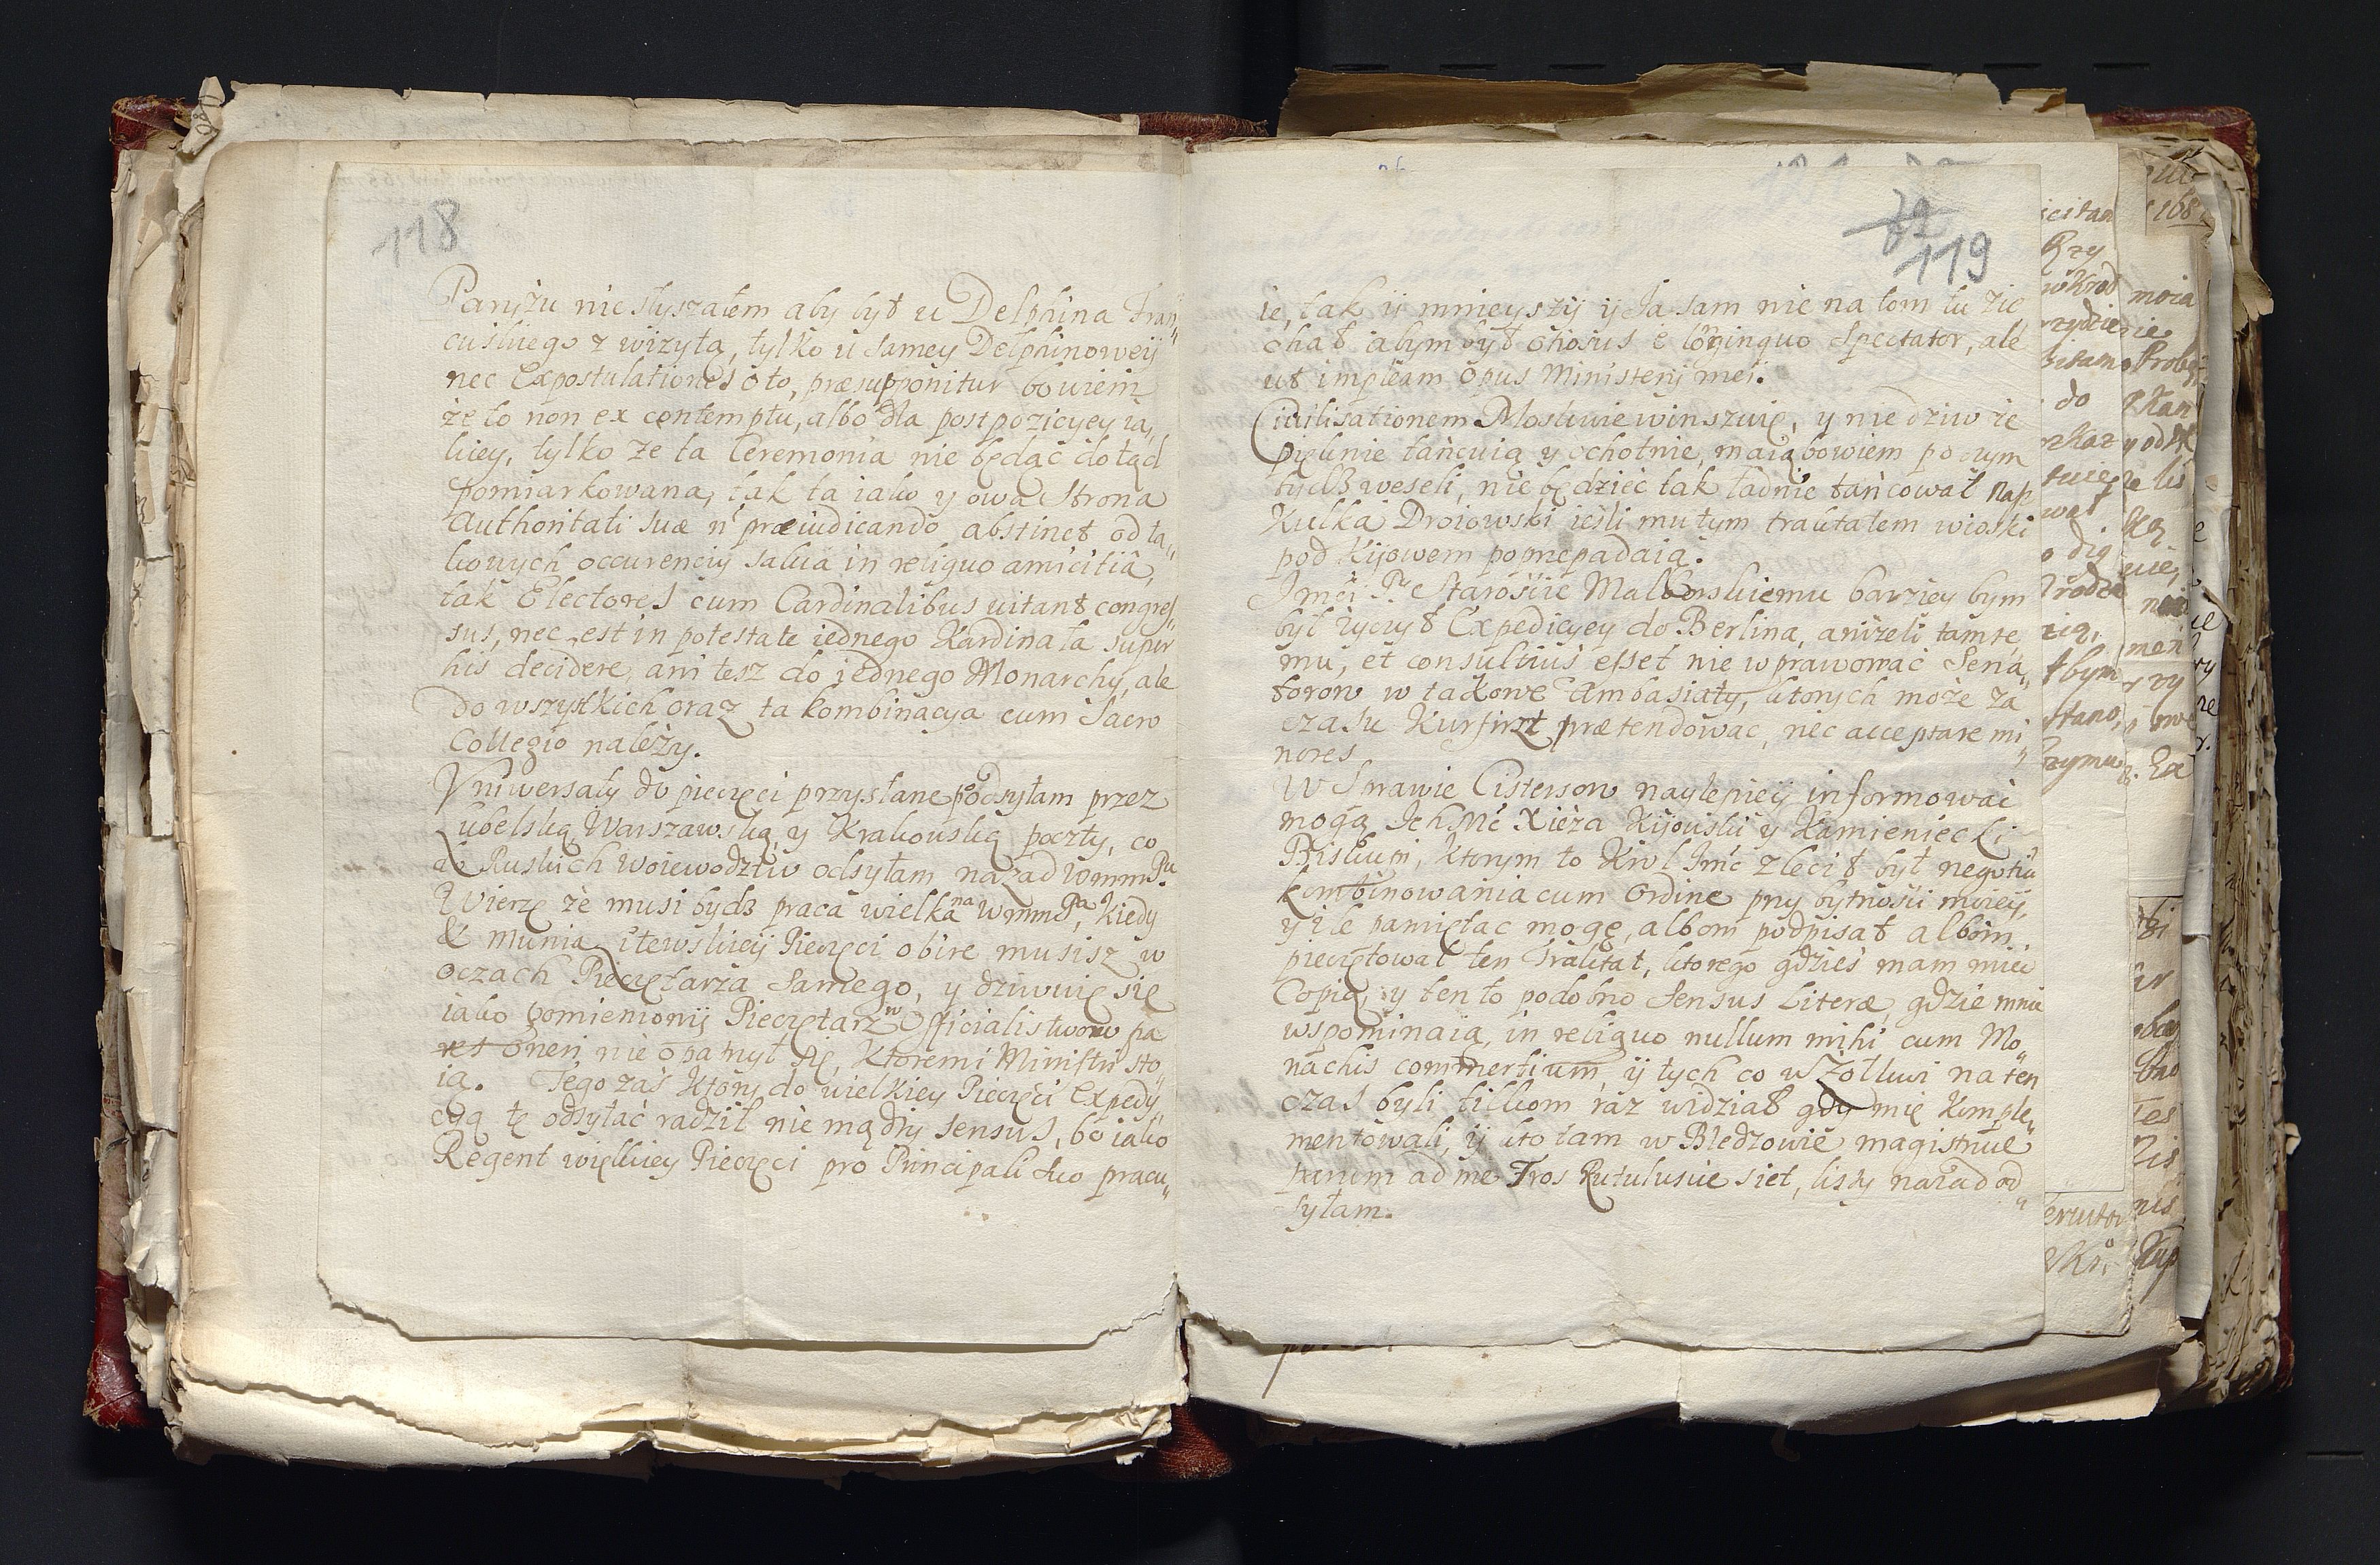 118
Paryżu nie słyszałem aby był u Delphina Fran„
cuskiego z wizytą, tylko u samey Delphinoweÿ
nec Expostulationes o to, præsupponitur bowiem
że to non ex contemptu, albo dla postpozicyey ia„
kiey, tylko że ta Ceremonia nie będąc dotąd
pomiarkowana, tak ta iako y owa Strona
Authoritati suæ n̄ præiudicando abstinet od ta„
kowych occurenciy salva in reliquo amicitiâ,
tak Electores cum Cardinalibus vitant congres„
sus, nec est in potestate iednego Kardinała super
his decidere, ani tesz do jednego Monarchy, ale
do wszystkich oraz ta kombinacya cum Sacro
Collegio należy.
Vniwersały do pieczęci przysłane podsyłam przez
Lubelską Warszawską, y Krakowską poczty, co
do Ruskich Woiewodztw odsyłam nazad WmmPu.
Wierzę że musi bydź praca wielka na WmmPa, kiedy
& munia Litewskieÿ Pieczęci obire musisz w
oczach Pieczętarza Samego, y dziwuię się
iako pomienionÿ Pieczętarz w Officialistwow pa
res oneri nie opatrzył się, ktoremi Ministri sto„
ią. Tego zaś Ktory do wielkiey Pieczęci Expedy„
cyą tę odsyłać radził nie mądry sensus, bo iako
Regent więkkiey Pieczęci pro Principali suo pracu„
119
ie, tak ÿ mnieyszÿ ÿ Ja sam nie na tom tu zie„
chał abym był otiosus è longinquo Spectator, ale
ut impleam opus Ministerÿ mei.
Civilisationem Moskwie winszuię, y nie dziw że
pięknie tańcuią y ochotnie, maią bowiem po czym
bydź weseli, nie będzie tak ładnie tańcował Pap
Kulka Droiowski ieśli mu tym traktatem wioski
pod Kijowem poprzepadaią.
Jmći Pu Starośćie Malborskiemu barziey bym
był życzył Expedicyey do Berlina, aniżeli tamte„
mu, et consultius esset nie wprawować Sena„
torow w takowe Ambasiaty, ktorych może za
czasu Kurfirszt prætendować, nec acceptare mi„
nores
W Sprawie Cistersow naylepieÿ informować
mogą Jch Mć Xięża Kijowski y Kamieniecki
Biskupi, ktorym to Krol Jmć zlecił był negotiū
kombinowania cum Ordine przy bytności moieÿ,
y ile pamiętac mogę, albom podpisał albom
pieczętował ten Traktat, ktorego gdzieś mam mieć
Copią, y ten to podobno Sensus Literæ, gdzie mnie
wspominaią, in reliquo nullum mihi cum Mo„
nachis commertium, ÿ tych co w Żołkwi na ten
czas byli tilkom raz widział gdy mię komple„
mentowali, ÿ kto tam w Bledzowie magistruie
parum ad me Tros Rutulusve siet, listy nazad od„
syłam.